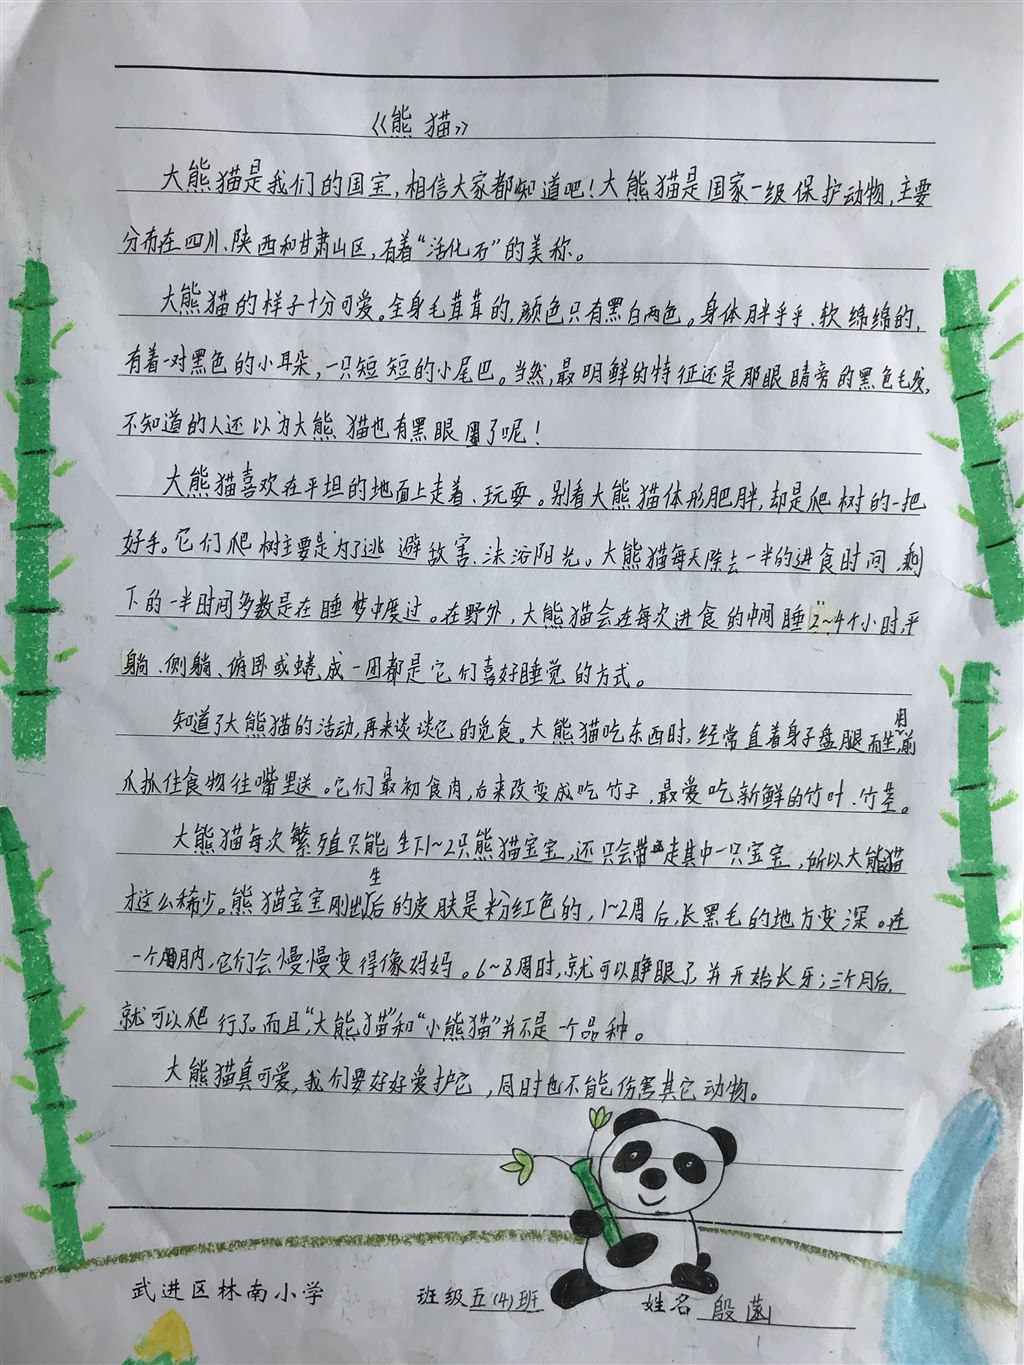 《熊猫》
大熊猫是我们的国宝,相信大家都知道吧!大熊猫是国家一级保护动物,主要
分布在四川、陕西和甘肃山区,有着“活化石”的美称。
大熊猫的样子十分可爱。全身毛茸茸的,颜色只有黑白两色。身体胖乎乎、软绵绵的,
有着一对黑色的小耳朵,一只短短的小尾巴。当然,最明鲜的特征还是那眼睛旁的黑色毛发,
不知道的人还以为大熊猫也有黑眼圈了呢!
大熊猫喜欢在平坦的地面上走着、玩耍。别看大熊猫体形肥胖,却是爬树的一把
好手。它们爬树主要是为了逃避敌害、沐浴阳光。大熊猫每天除去一半的进食时间,剩
下的一半时间多数是在睡梦中度过。在野外,大熊猫会在每次进食的中间睡2~4个小时,平
躺、侧躺、俯卧或蜷成一团都是它们喜好睡觉的方式。
知道了大熊猫的活动,再来谈谈它的觅食。大熊猫吃东西时,经常直着身子盘腿而坐,用前
爪抓住食物往嘴里送。它们最初食肉,后来改变成吃竹子,最爱吃新鲜的竹叶、竹茎。
大熊猫每次繁殖只能生下1~2只熊猫宝宝,还只会带走其中一只宝宝,所以大熊猫
才这么稀少。熊猫宝宝刚出生后的皮肤是粉红色的,1~2周后,长黑毛的地方变深。在
一个月内,它们会慢慢变得像妈妈。6~8周时,就可以睁眼了,并开始长牙;三个月后,
就可以爬行了。而且,“大熊猫”和“小熊猫”并不是一个品种。
大熊猫真可爱,我们要好好爱护它,同时也不能伤害其它动物。
武进区林南小学 班级五(4)班 姓名 殷